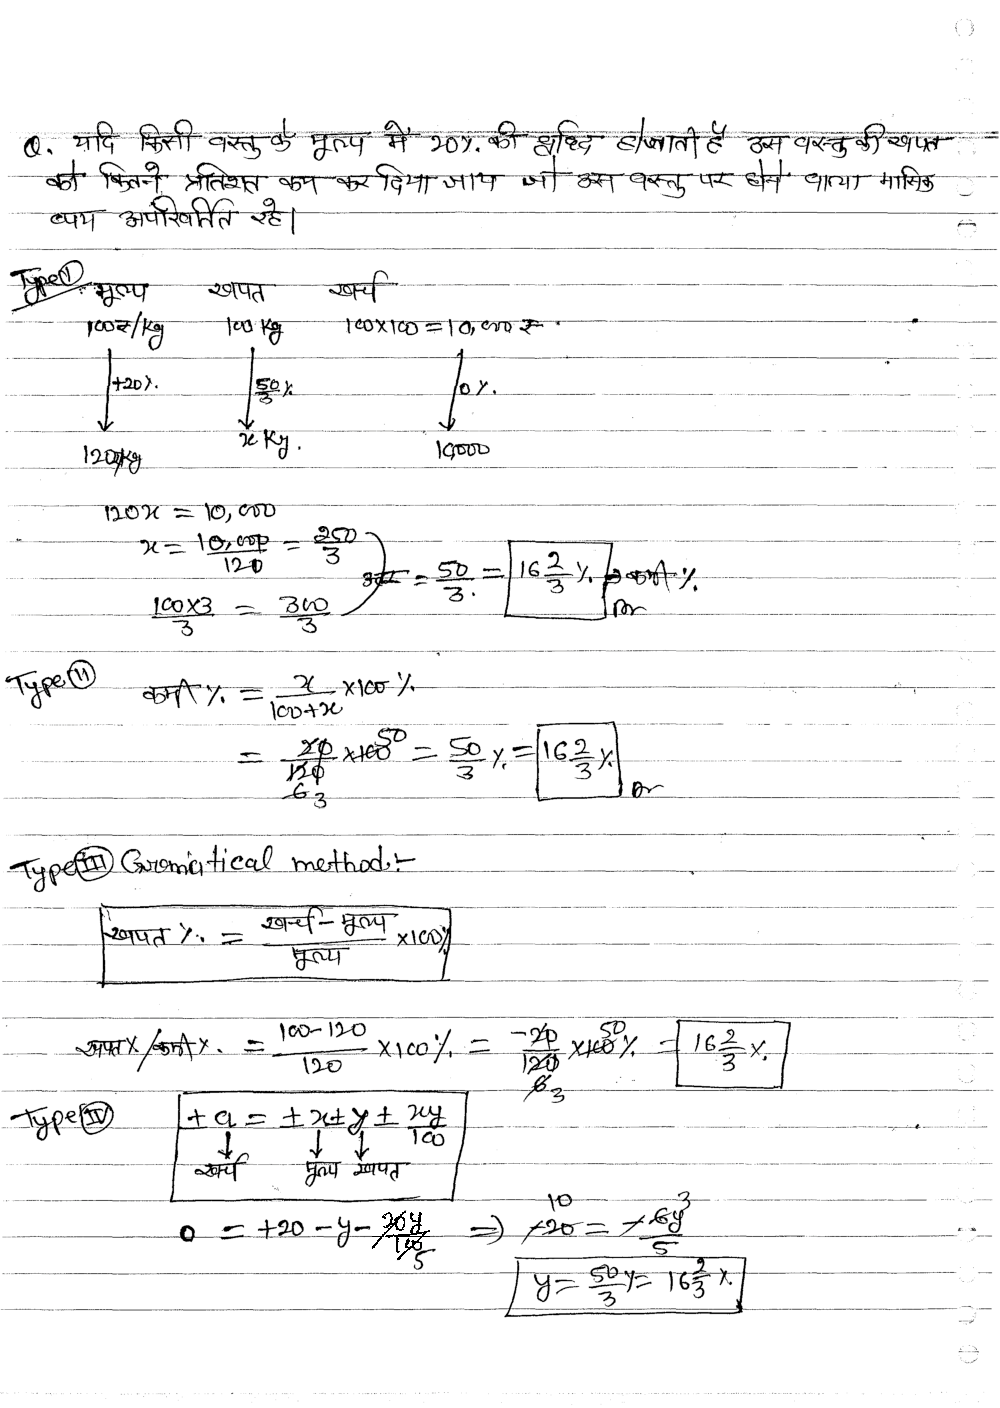 Q. यदि किसी वस्तु के मूल्य में 20%. की वृद्धि हो जाती है उस वस्तु की खपत
को कितने प्रतिशत कम कर दिया जाय जो उस वस्तु पर होने वाला मासिक
व्यय अपरिवर्तित रहे।
Type(I) मूल्य खपत खर्च
100₹/kg 100 kg 100x100 = 10,000 ₹
+20%. 50/3 % 0 %.
120/kg x Kg. 10,000
120x = 10,000
x = 10,000/120 = 250/3
100x3/3 = 300/3
= 50/3. = 16 2/3 %. कमी %.
Ans
Type(II) कमी %. = x/(100+x) x100 %.
= 20/120 x100 = 50/3 %. = 16 2/3 %.
50
6 3
Ans
Type(III) Gromatical method:-
खपत %. = (खर्च - मूल्य)/मूल्य x100%
खपत%/कमी%. = (100-120)/120 x100%. = -20/120 x100%. = 16 2/3 %.
50
6 3
Type(IV) ± a = ± x ± y ± xy/100
खर्च मूल्य खपत
0 = +20 - y - 20y/100 ⇒ -20 = -6y/5
5
10 3
y = 50/3 % = 16 2/3 %.